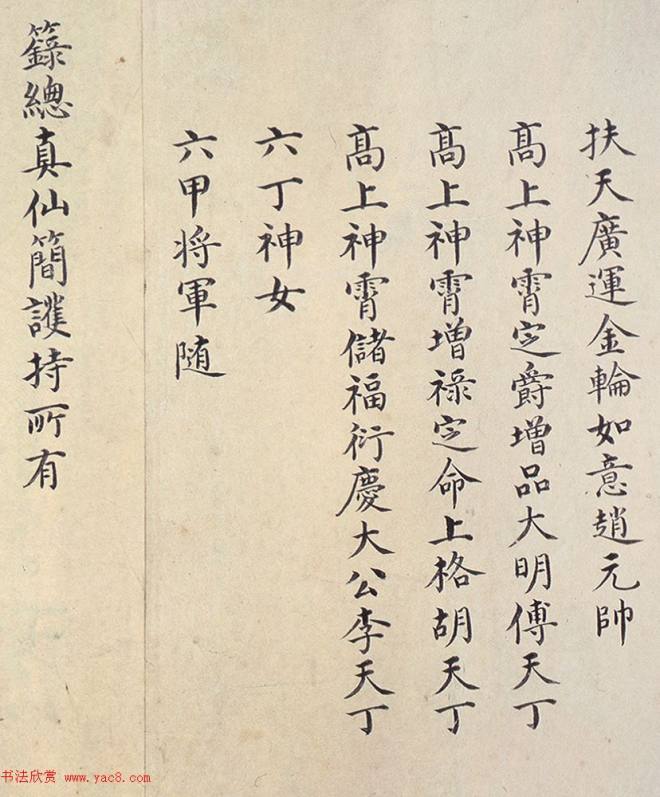 扶天廣運金輪如意趙元帥
髙上神霄定爵增品大明傅天丁
髙上神霄增祿定命上格胡天丁
髙上神霄儲福衍慶大公李天丁
六丁神女
六甲将軍随
籙總真仙簡護持所有
书法欣赏 www.yac8.com